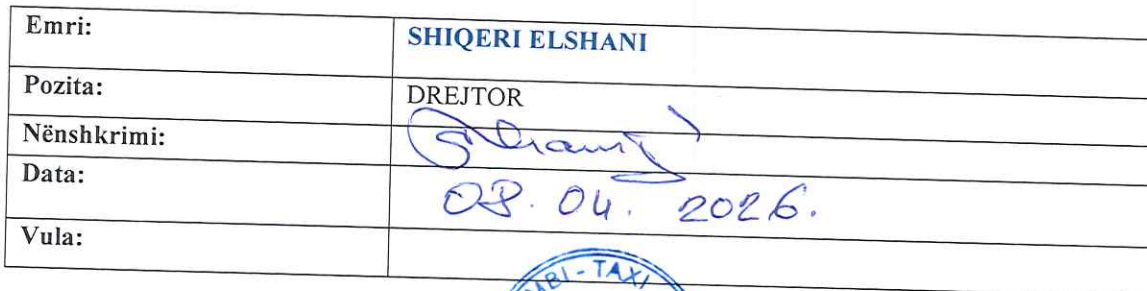 Emri: SHIQERI ELSHANI
Pozita: DREJTOR
Nënshkrimi:
Data: 08.04.2026.
Vula:
MBI-TAXI